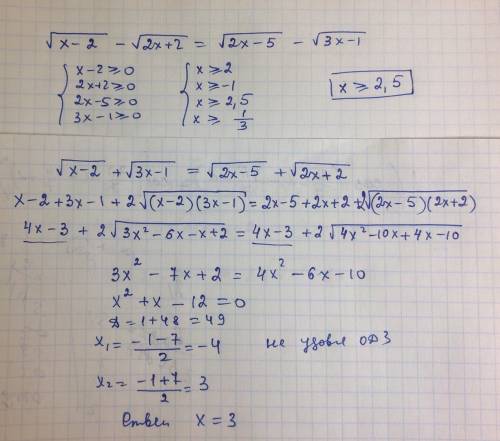 √(x-2) - √(2x+2) = √(2x-5) - √(3x-1)
{ x-2 ≥ 0 { x ≥ 2
2x+2 ≥ 0 x ≥ -1
2x-5 ≥ 0 x ≥ 2,5
3x-1 ≥ 0 x ≥ 1/3
x ≥ 2,5
√(x-2) + √(3x-1) = √(2x-5) + √(2x+2)
x-2+3x-1+2√((x-2)(3x-1)) = 2x-5+2x+2+2√((2x-5)(2x+2))
4x-3 + 2√(3x²-6x-x+2) = 4x-3 + 2√(4x²-10x+4x-10)
3x² - 7x + 2 = 4x² - 6x - 10
x² + x - 12 = 0
D = 1+48 = 49
x₁ = (-1-7)/2 = -4 не удовл ОДЗ
x₂ = (-1+7)/2 = 3
Ответ x = 3